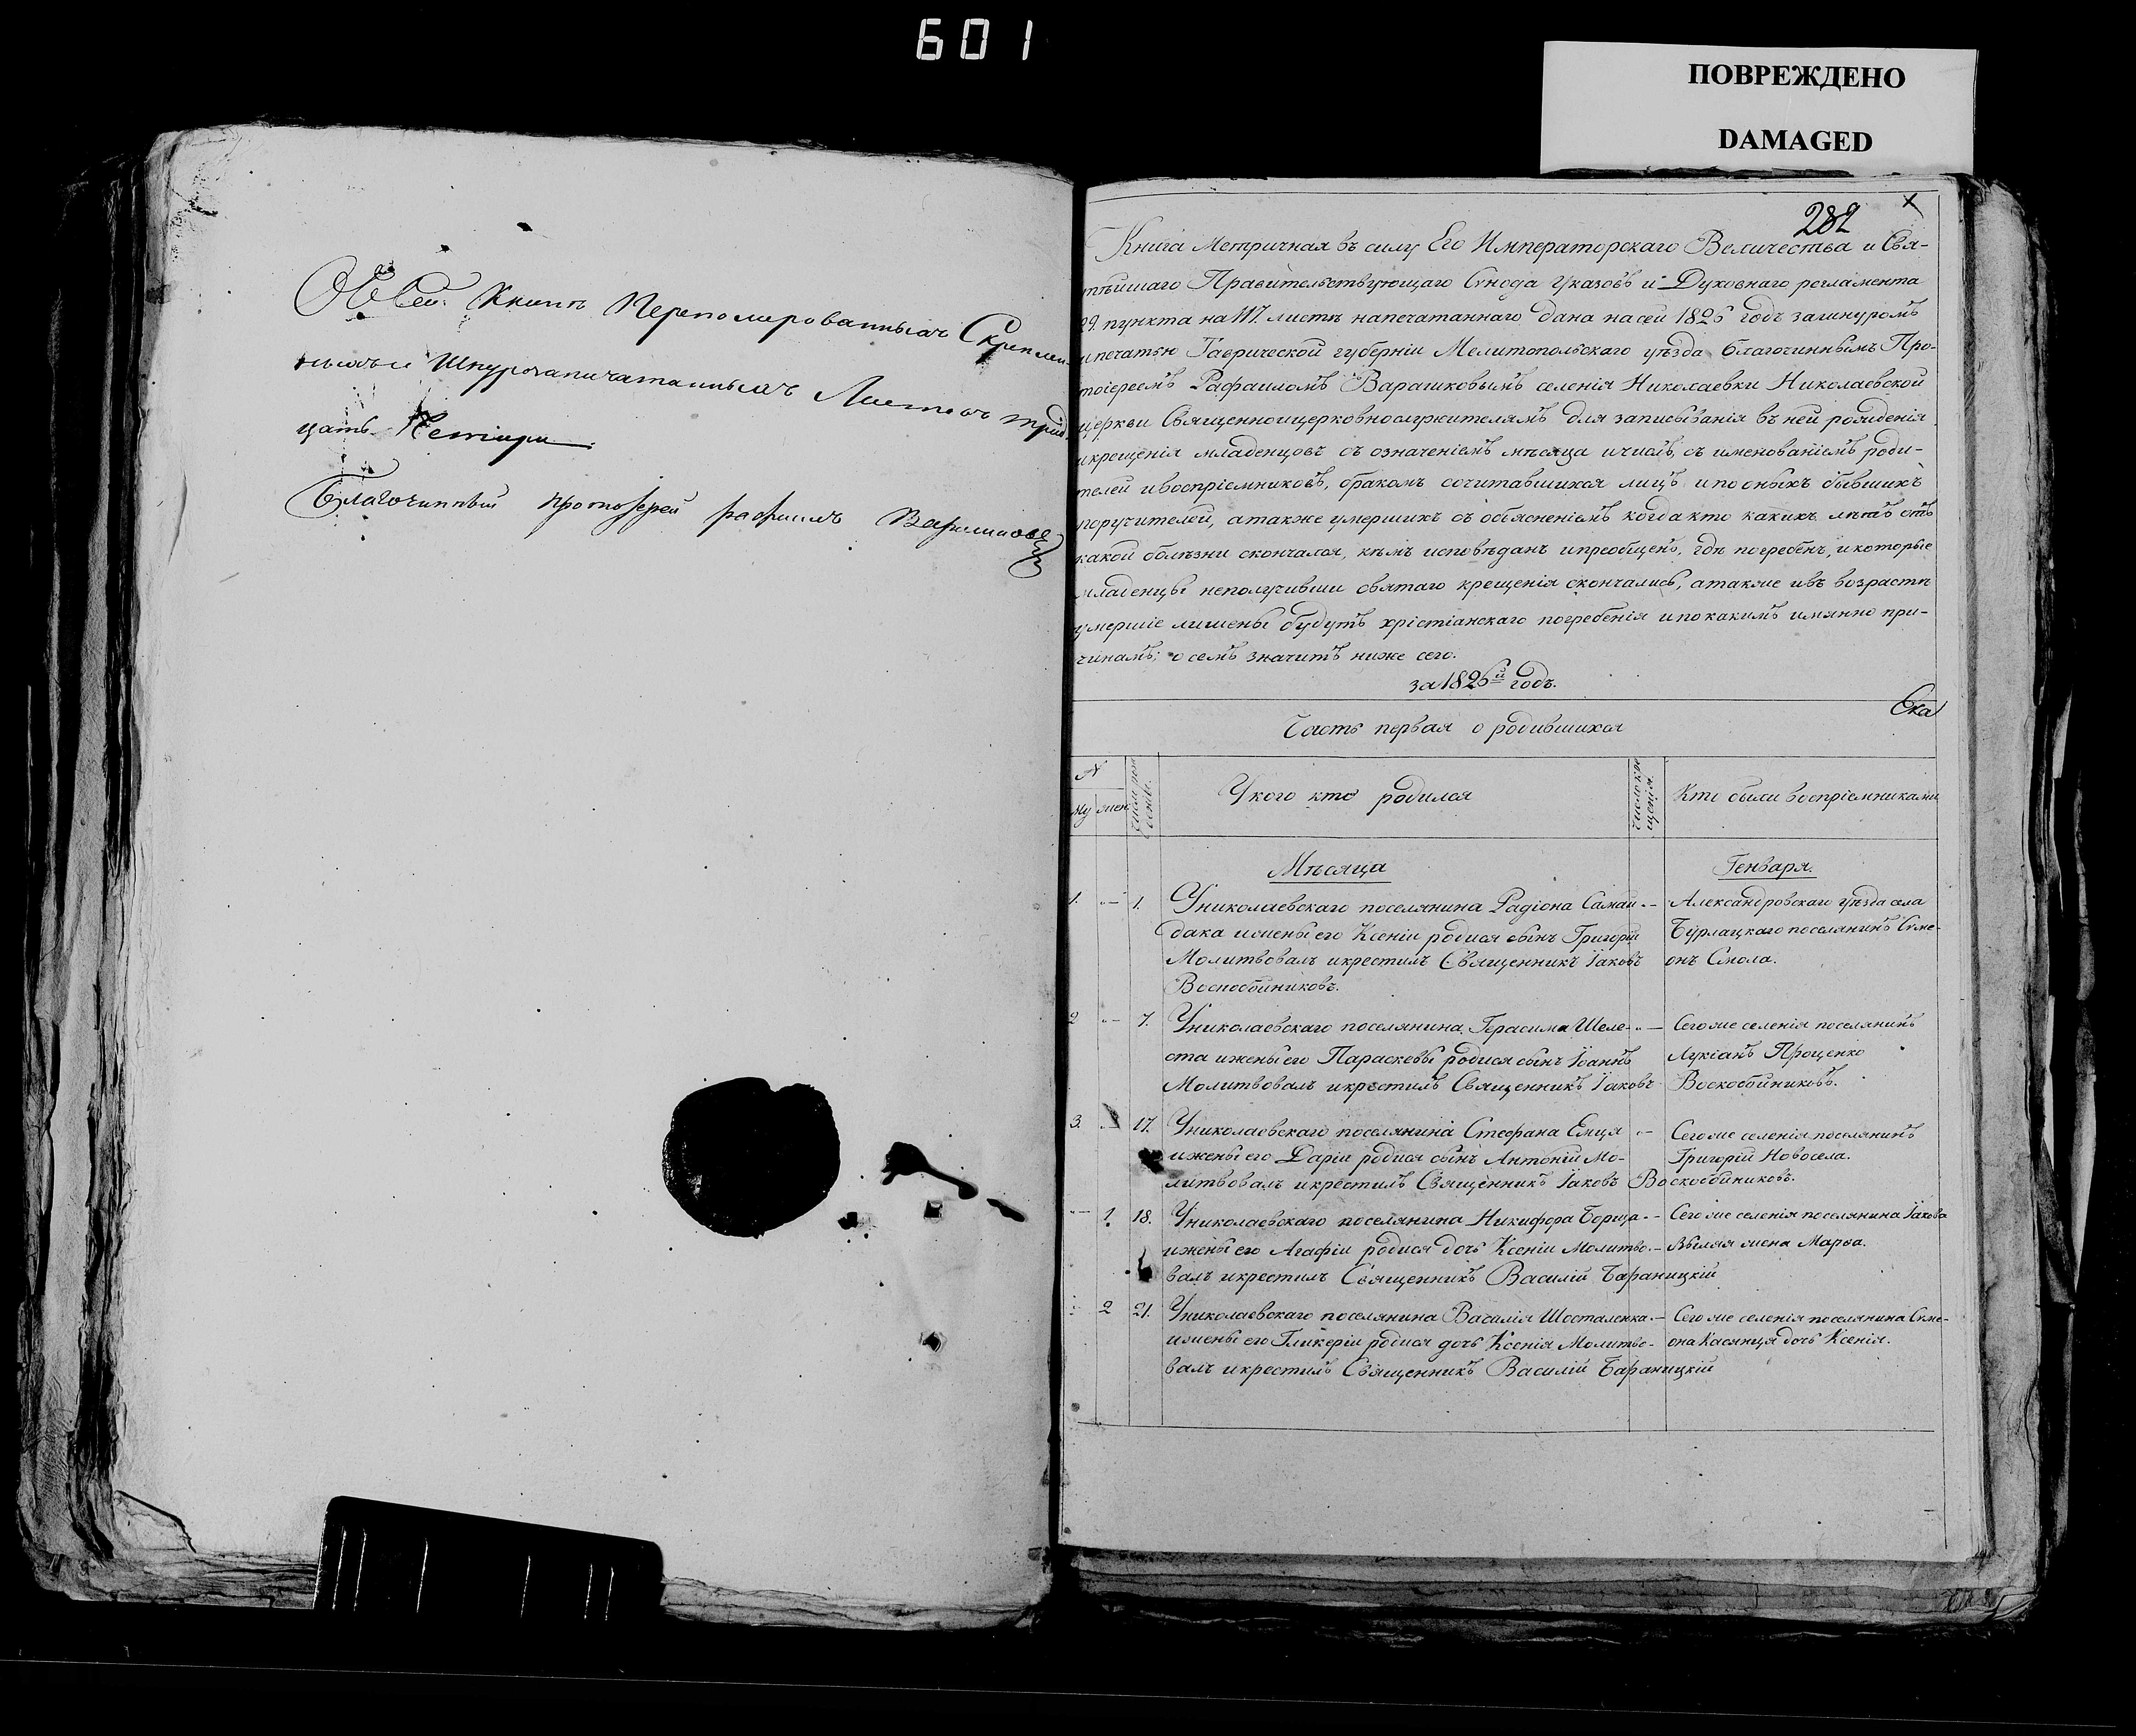 601
ПОВРЕЖДЕНО
DAMAGED
Въ сей Книге Перенумерованныхъ Скреплен-
ныхъ и Шнурозапечатанныхъ Листовъ трид-
цать Четыри
Благочинный протоіерей рафаилъ Варашковъ
282
Книга Метричная въ силу Его Императорскаго Величества и Свя-
тѣйшаго Правительствующаго Сѵнода указовъ и Духовнаго регламента
29. пункта на 117. листѣ напечатаннаго дана на сей 1826 годъ за шнуромъ
и печатью Таврической губерніи Мелитопольскаго уѣзда благочиннымъ Про-
тоіереемъ Рафаиломъ Варашковымъ селенія Николаевки Николаевской
церкви Священноицерковнослужителямъ для записыванія въ ней рожденія
и крещенія младенцовъ съ означеніемъ мѣсяца и числъ, съ именованіемъ роди-
телей и воспріемниковъ, бракомъ сочитавшихся лицъ и по оныхъ бывшихъ
поручителей, а также умершихъ съ объясненіемъ когда кто какихъ лѣтъ отъ
какой болѣзни скончался, кѣмъ исповѣданъ и преобщенъ, гдѣ погребенъ, и которые
младенцы неполучивши святаго крещенія скончались, а также и въ возрастѣ
умершіе лишены будутъ хрістіанскаго погребенія и по какимъ имянно при-
чинамъ; о семъ значитъ ниже сего.
за 1826й годъ.
Ска
Часть первая о родившихся
N
Му жен
число рож
денія.
У кого кто родился
число кре
щенія.
Кто были воспріемниками
Мѣсяца Генваря.
1. „— 1. У николаевскаго поселянина Радіона Самай- „— Александровскаго уѣзда села
дака и жены его Ксеніи родися сынъ Григорій Бурлацкаго поселянинъ Сѵме-
Молитвовалъ и крестилъ Священникъ Іаковъ онъ Смола.
Воскобойниковъ.
2 „— 7. У николаевскаго поселянина Герасима Шеле- „— Сего же селенія поселянинъ
ста и жены его Параскевы родися сынъ Іоаннъ Лукіанъ Проценко
Молитвовалъ и крестилъ Священникъ Іаковъ Воскобойниковъ.
3. „— 17. У николаевскаго поселянина Стефана Емца „— Сего же селенія поселянинъ
и жены его Даріи родися сынъ Антоній Мо- Григорій Новосела.
литвовалъ и крестилъ Священникъ Іаковъ Воскобойниковъ.
„— 1. 18. У николаевскаго поселянина Никифора Борща „— Сего же селенія поселянина Іакова
и жены его Агафіи родися дочь Ксенія Молитво- жена Марѳа.
валъ и крестилъ Священникъ Василій Бараницкій
„— 2 21. У николаевскаго поселянина Василія Шосталенка „— Сего же селенія поселянина Сѵме-
и жены его Гликеріи родися дочь Ксенія Молитво- она Касянца дочь Ксенія.
валъ и крестилъ Священникъ Василій Бараницкій